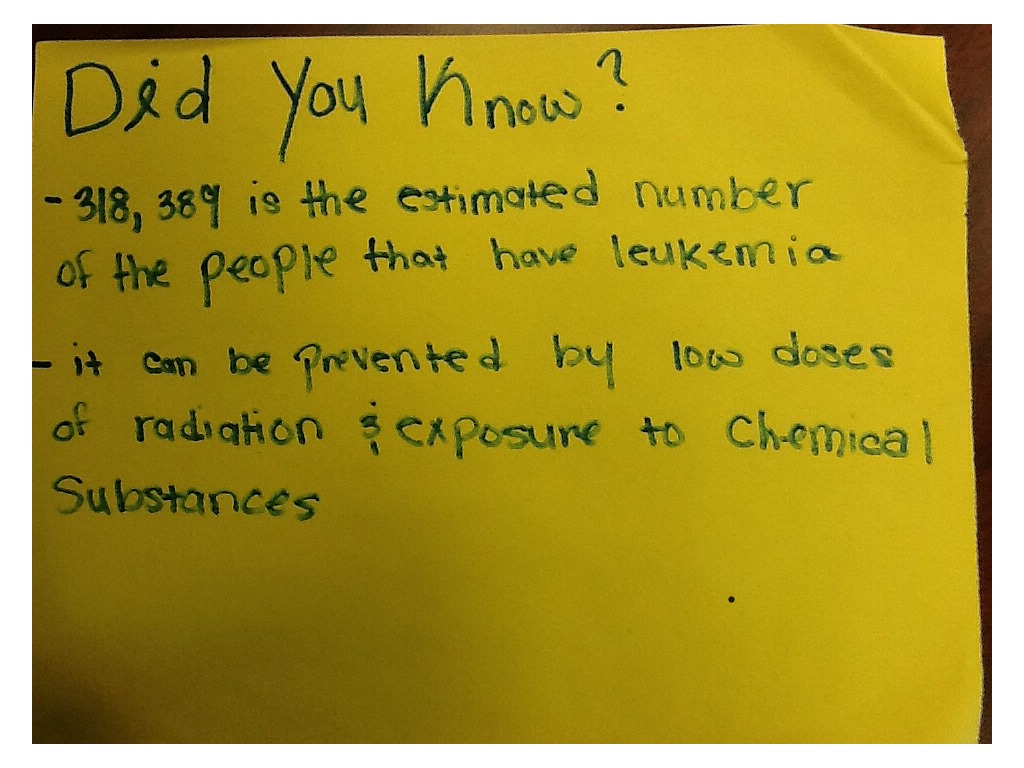 Did You Know?
- 318,389 is the estimated number
of the people that have leukemia
- it can be prevented by low doses
of radiation & exposure to Chemical
Substances